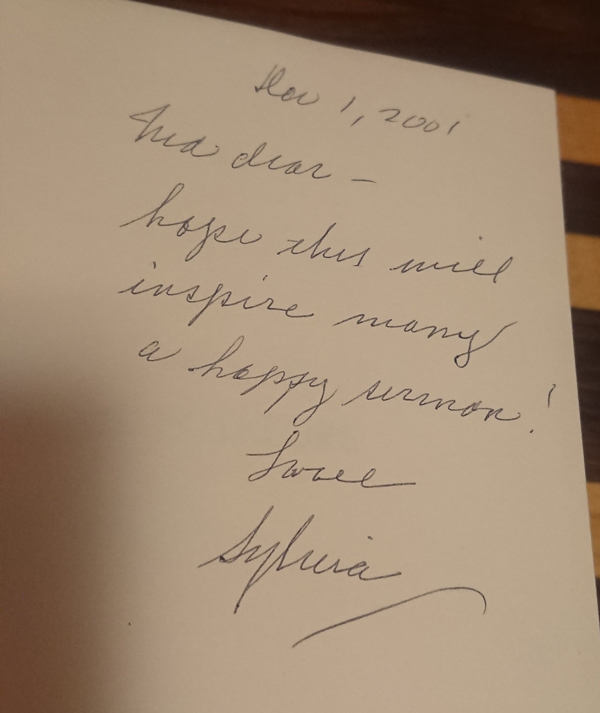 Nov 1, 2001
dear –
hope this will
inspire many
a happy sermon!
Love
Sylvia